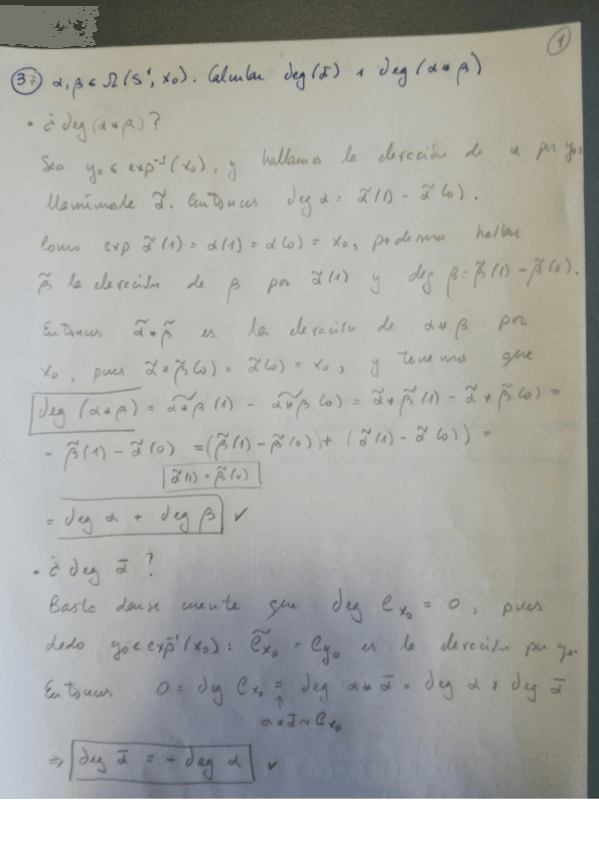 1
37 α, β ∈ Ω(S¹, x₀). Calcular deg(ᾱ) y deg(α * β)
• ¿deg(α * β)?
Sea y₀ ∈ exp⁻¹(x₀), y hallamos la elevación de α por y₀,
llamémosle α̃. Entonces deg α = α̃(1) - α̃(0).
Como exp α̃(1) = α(1) = α(0) = x₀, podemos hallar
β̃ la elevación de β por α̃(1) y deg β = β̃(1) - β̃(0).
Entonces α̃ * β̃ es la elevación de α * β por
x₀, pues α̃ * β̃(0) = α̃(0) = x₀, y tenemos que
deg(α * β) = α͠*β(1) - α͠*β(0) = α̃ * β̃(1) - α̃ * β̃(0) =
= β̃(1) - α̃(0) = (β̃(1) - β̃(0)) + (α̃(1) - α̃(0)) =
α̃(1) = β̃(0)
= deg α + deg β ✓
• ¿deg ᾱ?
Basta darse cuenta que deg C_{x₀} = 0, pues
dado y₀ ∈ exp⁻¹(x₀) : C̃_{x₀} = C_{y₀} es la elevación por y₀.
Entonces 0 = deg C_{x₀} = deg α * ᾱ = deg α + deg ᾱ
↑
α * ᾱ ~ C_{x₀}
⇒ deg ᾱ = - deg α ✓